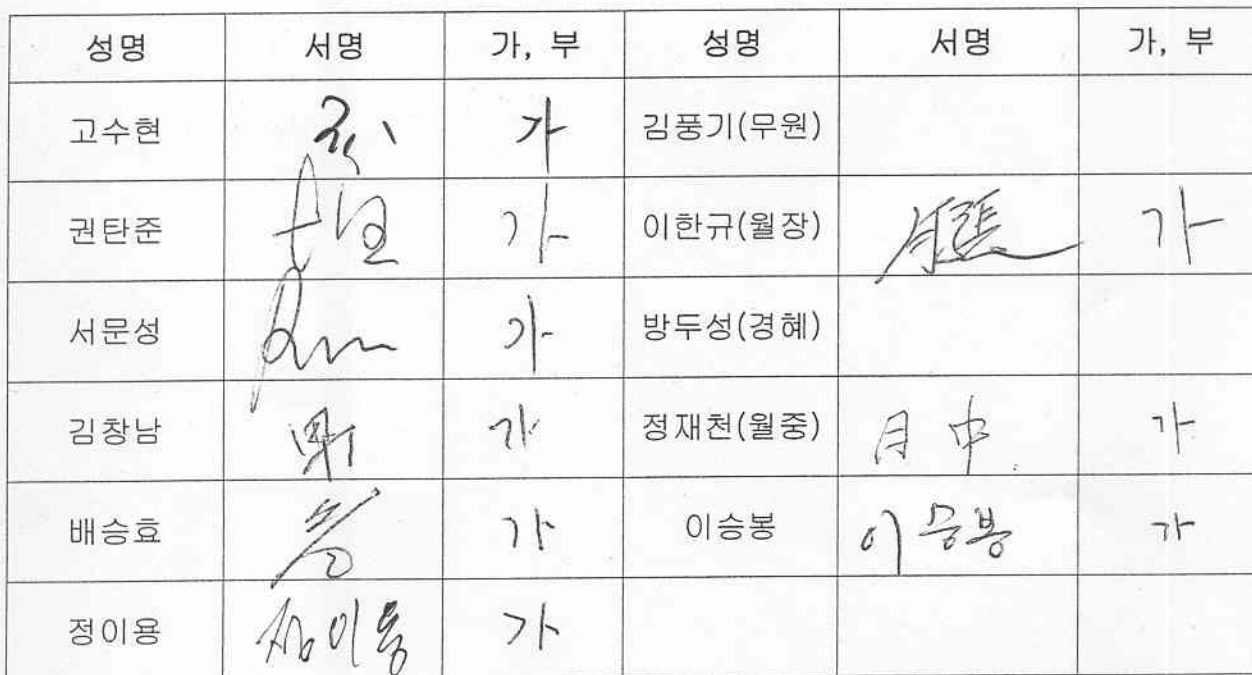 성명 서명 가, 부 성명 서명 가, 부
고수현 가 김풍기(무원)
권탄준 가 이한규(월장) 가
서문성 가 방두성(경혜)
김창남 가 정재천(월중) 月中 가
배승효 가 이승봉 이승봉 가
정이용 정이용 가